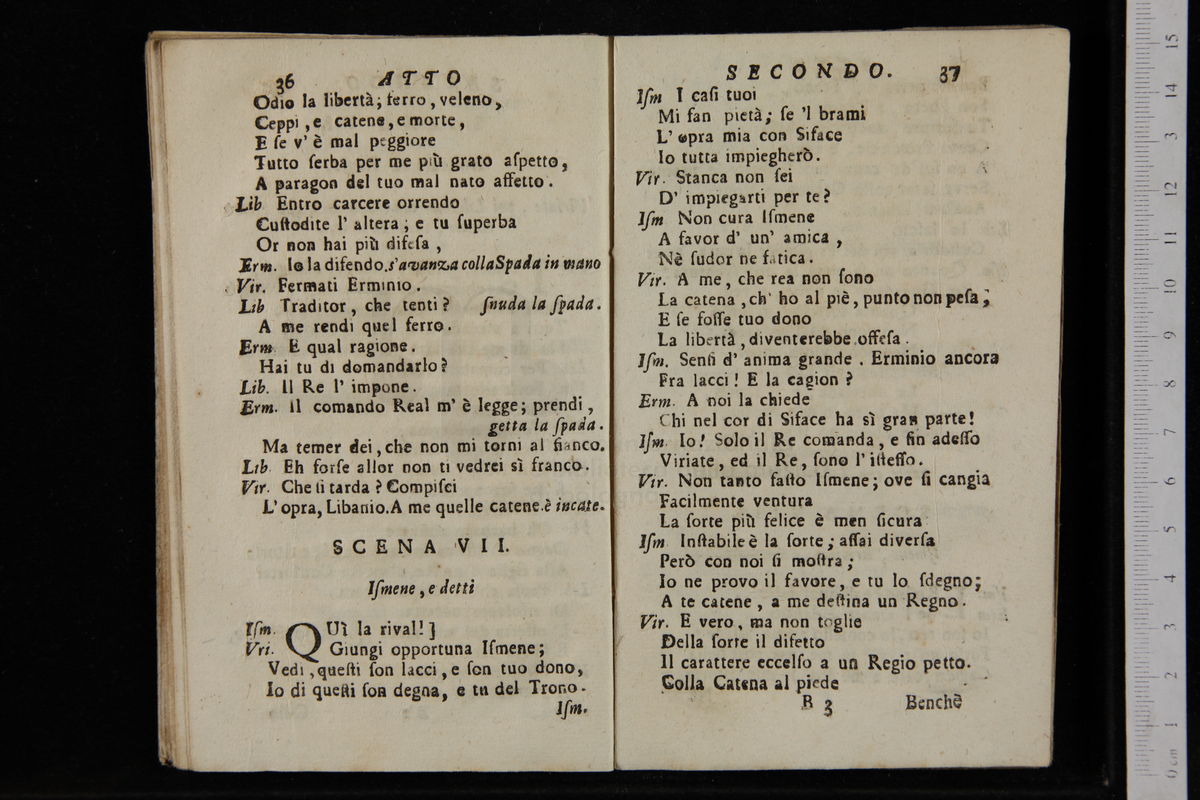 36 ATTO
Odio la libertà; ferro, veleno,
Ceppi, e catene, e morte,
E ſe v' è mal peggiore
Tutto ſerba per me più grato aſpetto,
A paragon del tuo mal nato affetto.
Lib Entro carcere orrendo
Cuſtodite l' altera; e tu ſuperba
Or non hai più difeſa,
Erm. Io la difendo. s'avanza colla Spada in mano
Vir. Fermati Erminio.
Lib Traditor, che tenti? ſnuda la ſpada.
A me rendi quel ferro.
Erm. E qual ragione.
Hai tu di domandarlo?
Lib. Il Re l' impone.
Erm. Il comando Real m' è legge; prendi,
getta la ſpada.
Ma temer dei, che non mi torni al fianco.
Lib Eh forſe allor non ti vedrei sì franco.
Vir. Che ſi tarda? Compiſci
L' opra, Libanio. A me quelle catene. è incate.
SCENA VII.
Iſmene, e detti
Iſm. QUì la rival!]
Vri. Giungi opportuna Iſmene;
Vedi, queſti ſon lacci, e ſon tuo dono,
Io di queſti ſon degna, e tu del Trono.
Iſm.
SECONDO. 37
Iſm I caſi tuoi
Mi fan pietà; ſe 'l brami
L' opra mia con Siface
Io tutta impiegherò.
Vir. Stanca non ſei
D' impiegarti per te?
Iſm Non cura Iſmene
A favor d' un' amica,
Nè ſudor ne fatica.
Vir. A me, che rea non ſono
La catena, ch' ho al piè, punto non peſa;
E ſe foſſe tuo dono
La libertà, diventerebbe offeſa.
Iſm. Senſi d' anima grande. Erminio ancora
Fra lacci! E la cagion?
Erm. A noi la chiede
Chi nel cor di Siface ha sì gran parte!
Iſm. Io! Solo il Re comanda, e fin adeſſo
Viriate, ed il Re, ſono l' iſteſſo.
Vir. Non tanto faſto Iſmene; ove ſi cangia
Facilmente ventura
La ſorte più felice è men ſicura
Iſm Inſtabile è la ſorte; aſſai diverſa
Però con noi ſi moſtra;
Io ne provo il favore, e tu lo ſdegno;
A te catene, a me deſtina un Regno.
Vir. E vero, ma non toglie
Della ſorte il difetto
Il carattere eccelſo a un Regio petto.
Colla Catena al piede
B 3 Benchè